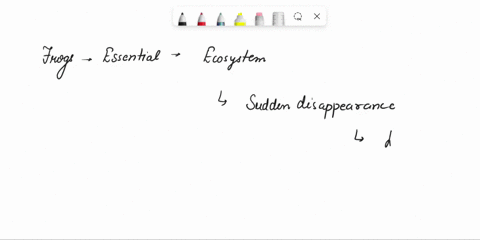 Frogs → Essential → Ecosystem
↳ Sudden disappearance
↳ d